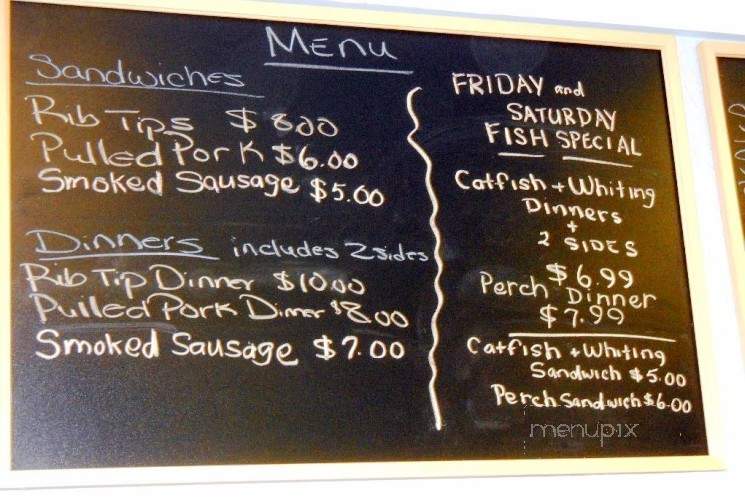 Menu
Sandwiches
Rib Tips $8.00
Pulled Pork $6.00
Smoked Sausage $5.00
Dinners includes 2 sides
Rib Tip Dinner $10.00
Pulled Pork Dinner $8.00
Smoked Sausage $7.00
FRIDAY and
SATURDAY
FISH SPECIAL
Catfish + Whiting
Dinners
+
2 SIDES
$6.99
Perch Dinner
$7.99
Catfish + Whiting
Sandwich $5.00
Perch Sandwich $6.00
menupix